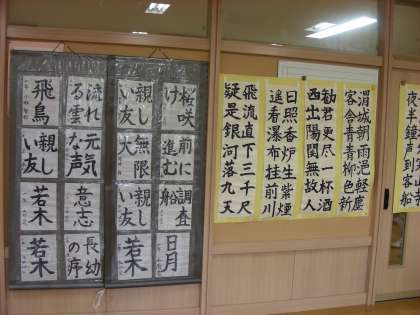 夜半鐘声到客船
渭城朝雨浥軽塵
客舎青青柳色新
勧君更尽一杯酒
西出陽関無故人
日照香炉生紫煙
遥看瀑布挂前川
飛流直下三千尺
疑是銀河落九天
桜咲け
親しい友
流れる雲
飛鳥
前に進む
無限大
元気な声
親しい友
調査船
親しい友
意志
若木
日月
若木
長幼の序
若木